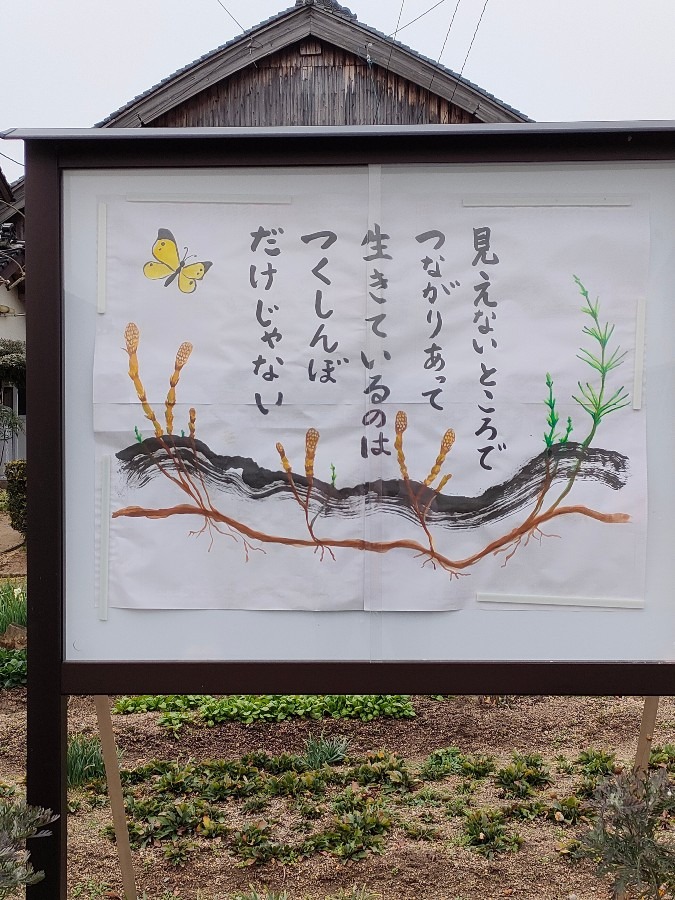 見えないところで
つながりあって
生きているのは
つくしんぼ
だけじゃない